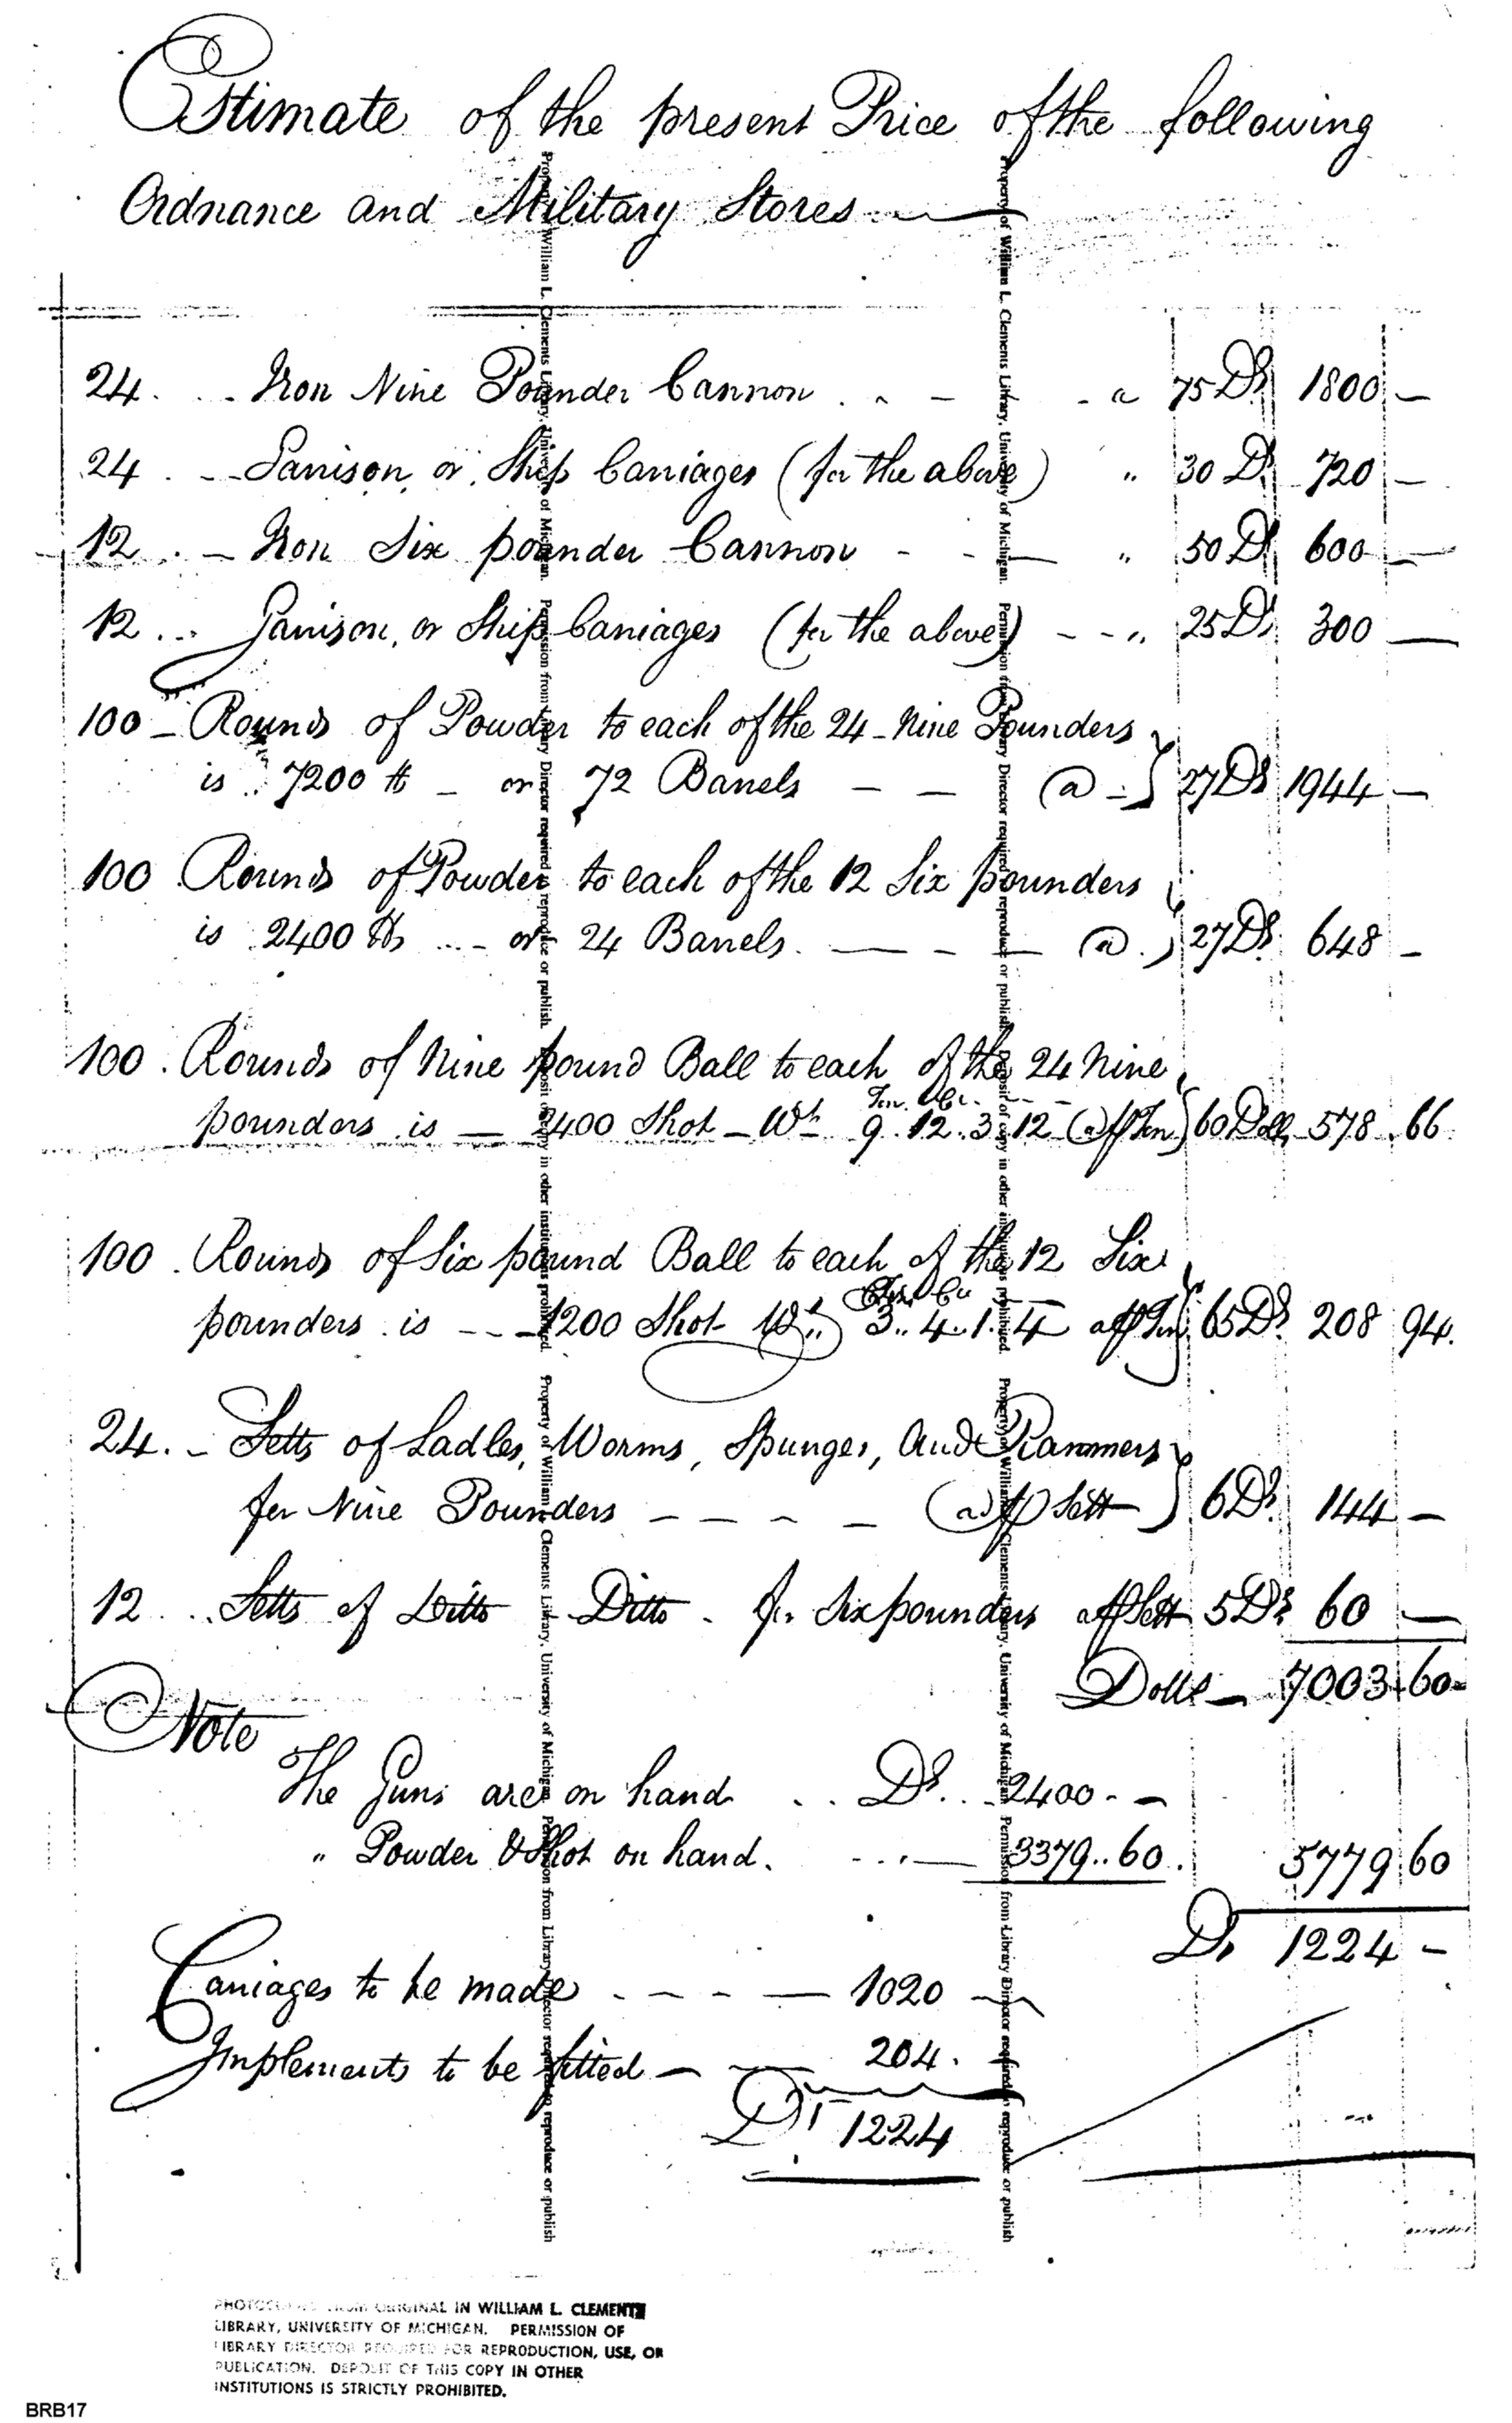 Estimate of the present Price of the following
Ordnance and Military Stores
24. Iron Nine Pounder Cannon a 75 Ds 1800 —
24 Garrison, or, Ship Carriages (for the above) " 30 Ds 720 —
12 Iron Six pounder Cannon " 50 Ds 600 —
12 Garrison, or Ship Carriages (for the above) " 25 Ds 300 —
100 Rounds of Powder to each of the 24 Nine Pounders
is 7200 lb or 72 Barrels @ 27 Ds 1944 —
100 Rounds of Powder to each of the 12 Six pounders
is 2400 lbs or 24 Barrels @ 27 Ds 648 —
100 Rounds of Nine pound Ball to each of the 24 Nine
pounders is 2400 Shot Wt 9.12.3.12 @ 60 Doll 578.66
100 Rounds of Six pound Ball to each of the 12 Six
pounders is 1200 Shot Wt 3..4..1..4 65 Ds 208 94.
24. Setts of Ladles, Worms, Spunges, and Rammers
for Nine Pounders @ Sett 6 Ds 144 —
12 Setts of Ditto Ditto for Six pounders Sett 5 Ds 60 —
Dolls 7003.60
Note
The Guns are on hand .. Ds.. 2400 . —
" Powder & Shot on hand. 3379..60. 5779.60
Ds 1224 —
Carriages to be made 1020 —
Implements to be fitted 204. —
Ds 1224
Property of William L. Clements Library, University of Michigan. Permission from Library Director required to reproduce or publish. Deposit of copy in other institutions prohibited. Property of William L. Clements Library, University of Michigan. Permission from Library Director required to reproduce or publish
Property of William L. Clements Library, University of Michigan. Permission from Library Director required to reproduce or publish. Deposit of copy in other institutions prohibited. Property of William L. Clements Library, University of Michigan. Permission from Library Director required to reproduce or publish
FROM ORIGINAL IN WILLIAM L. CLEMENTS
LIBRARY, UNIVERSITY OF MICHIGAN. PERMISSION OF
LIBRARY DIRECTOR REQUIRED FOR REPRODUCTION, USE, OR
PUBLICATION. DEPOSIT OF THIS COPY IN OTHER
INSTITUTIONS IS STRICTLY PROHIBITED.
BRB17